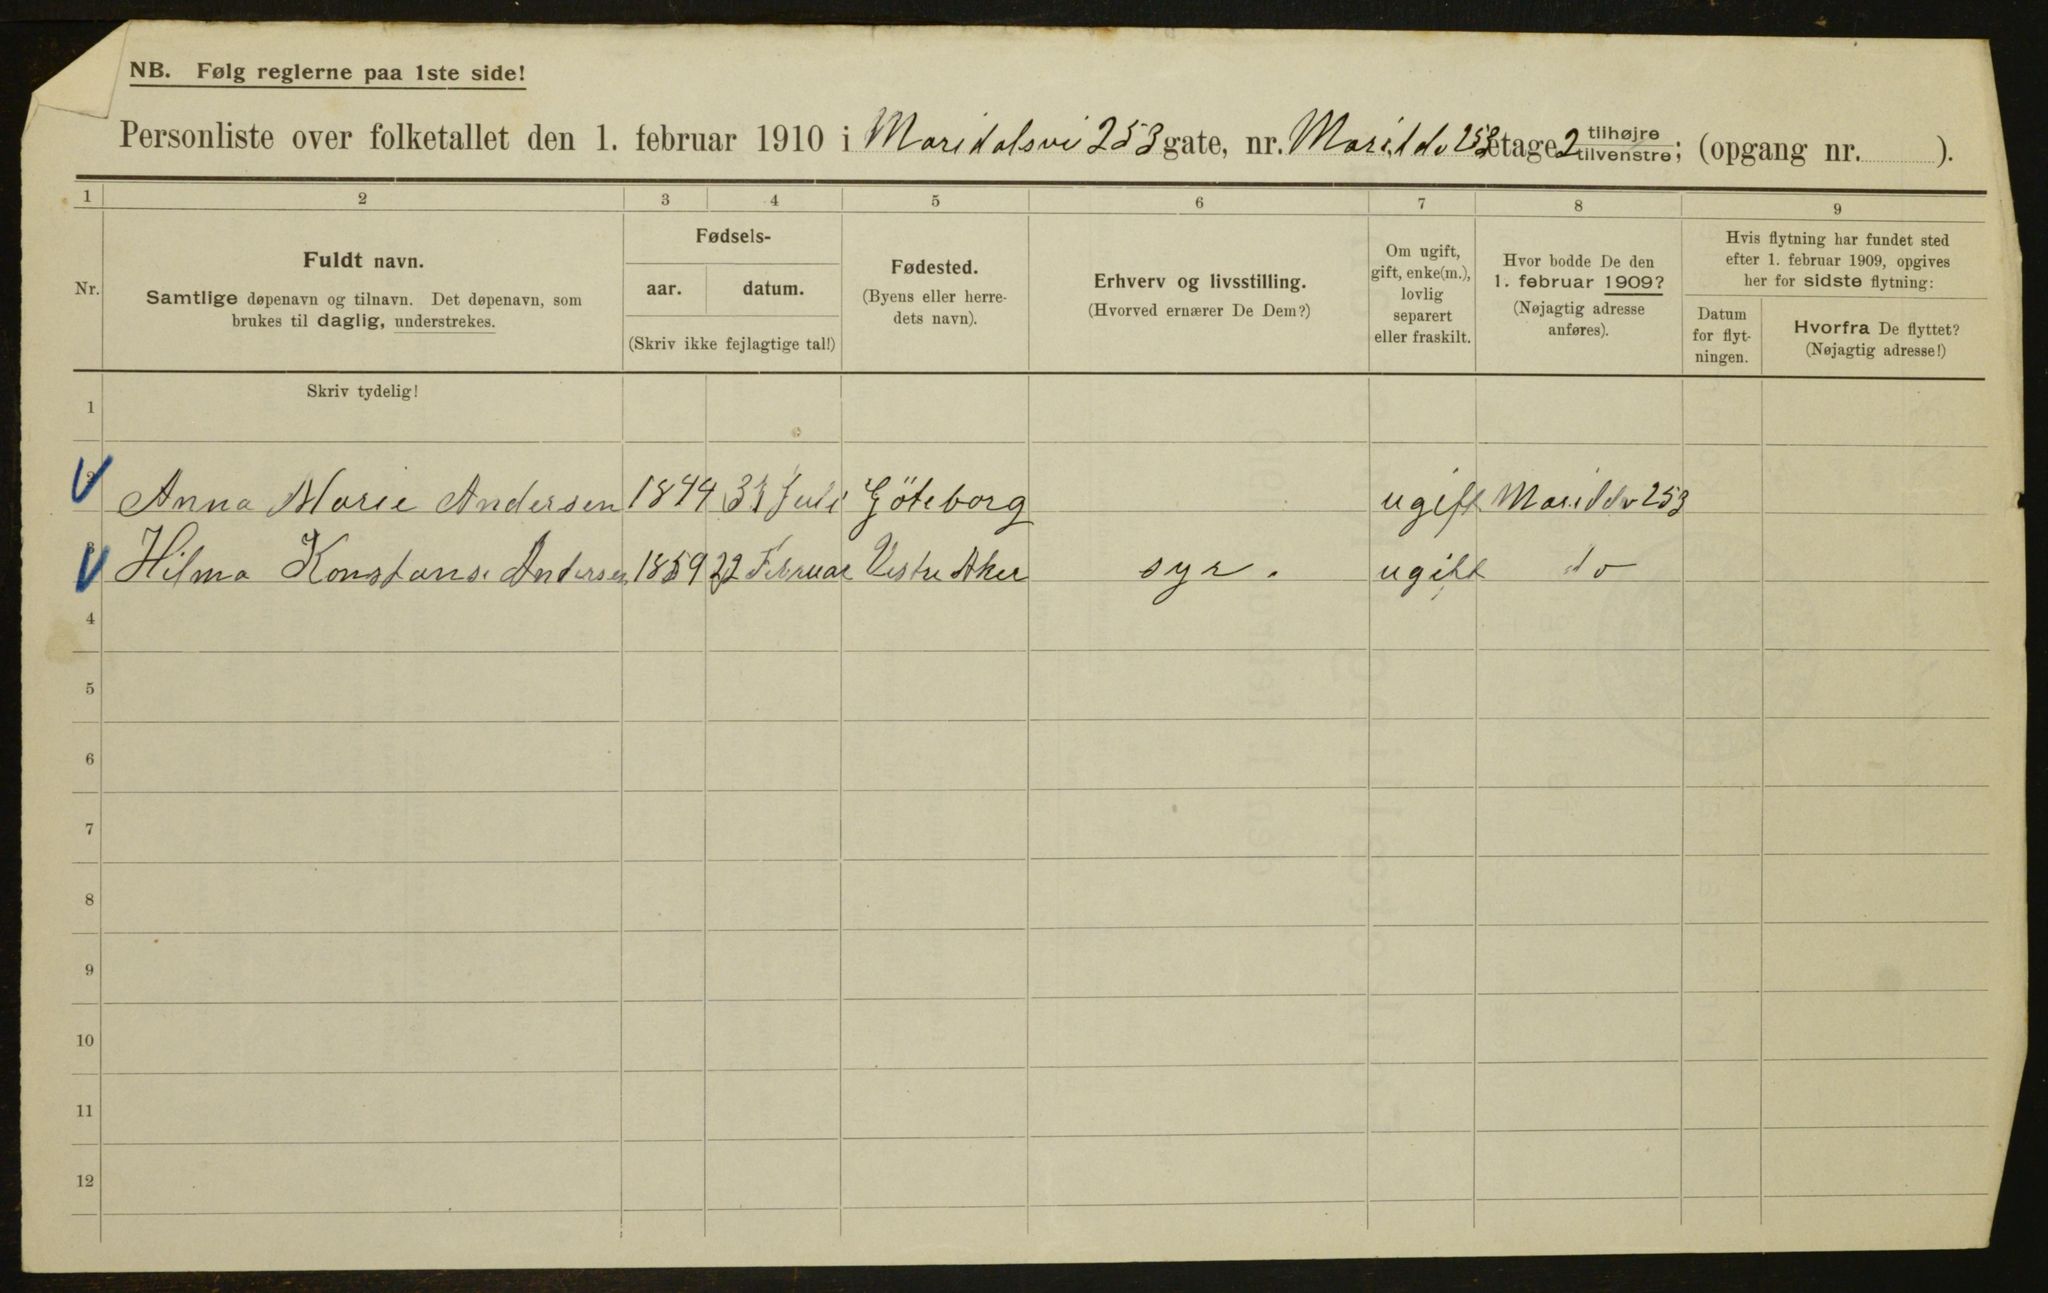 NB. Følg reglerne paa 1ste side!
Personliste over folketallet den 1. februar 1910 i Maridalsvei 253 gate, nr. Mariddv 253 etage 2 tilhøjre tilvenstre; (opgang nr. ).
1 2 3 4 5 6 7 8 9
Nr.
Fuldt navn.
Samtlige døpenavn og tilnavn. Det døpenavn, som
brukes til daglig, understrekes.
Fødsels-
aar. datum.
(Skriv ikke fejlagtige tal!)
Fødested.
(Byens eller herre-
dets navn).
Erhverv og livsstilling.
(Hvorved ernærer De Dem?)
Om ugift,
gift, enke(m.),
lovlig
separert
eller fraskilt.
Hvor bodde De den
1. februar 1909?
(Nøjagtig adresse
anføres).
Hvis flytning har fundet sted
efter 1. februar 1909, opgives
her for sidste flytning:
Datum
for flyt-
ningen.
Hvorfra De flyttet?
(Nøjagtig adresse!)
Skriv tydelig!
1
2 Anna Marie Andersen 1844 31 Juli Göteborg ugift Mariddv 253
3 Hilma Konstanse Andersen 1859 22 Februar Vestre Aker sye. ugift do
4
5
6
7
8
9
10
11
12